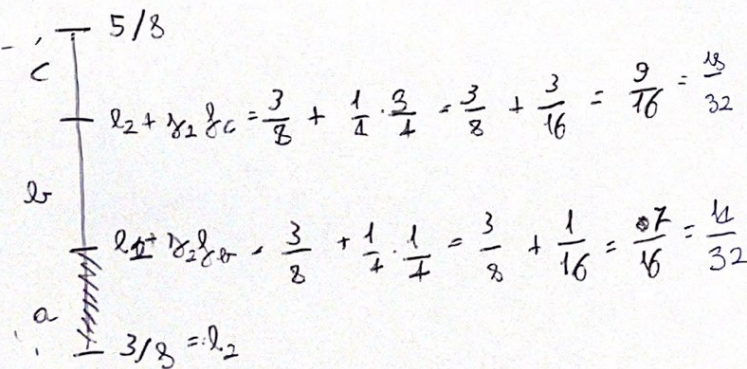 5/8
c
l₂ + γ₂ f_c = 3/8 + 1/4 · 3/4 = 3/8 + 3/16 = 9/16 = 18/32
b
l₂ + γ₂ f_b = 3/8 + 1/4 · 1/4 = 3/8 + 1/16 = 7/16 = 14/32
a
3/8 = l₂